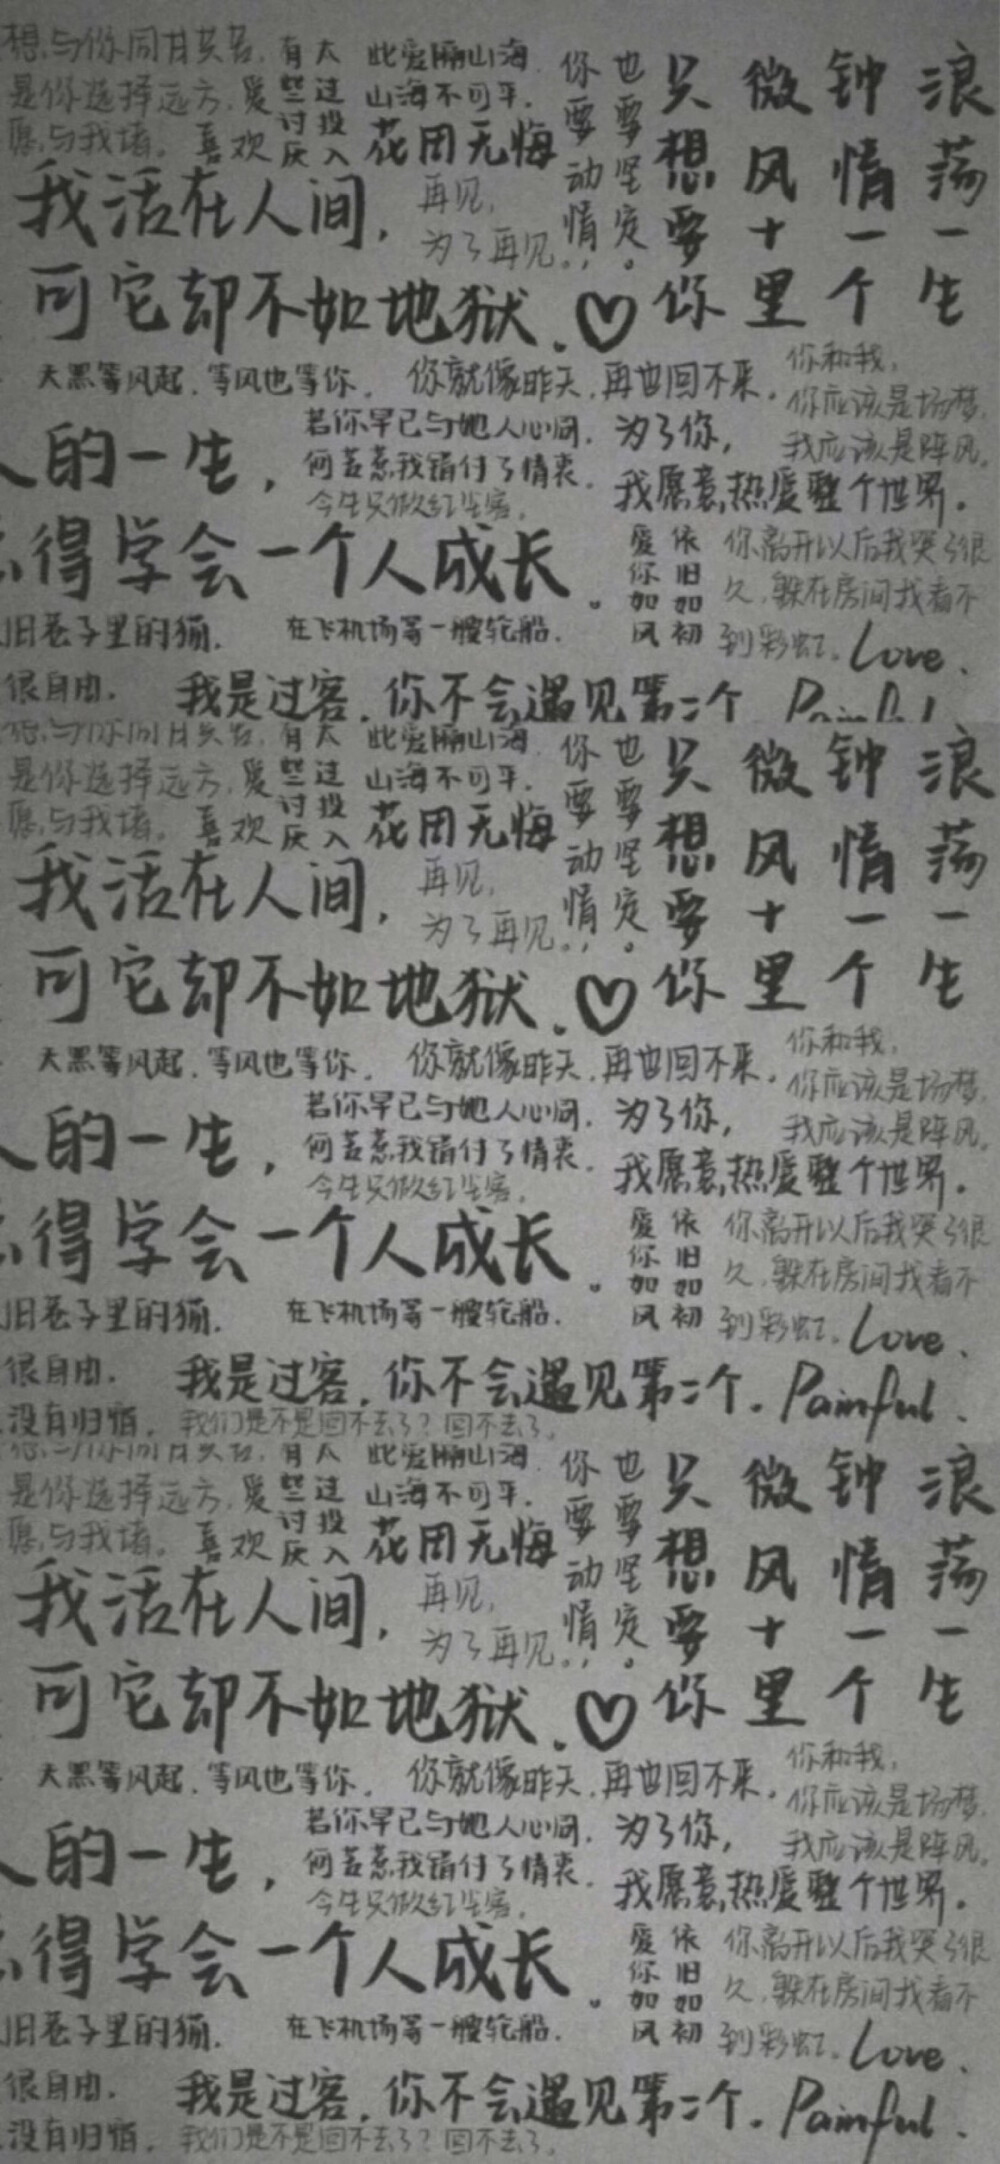 想与你同甘共苦,
是你选择远方,
愿与我堵。
爱
喜欢
有些讨厌
太过投入
此爱隔山海,
山海不可平.
花田无悔
你要动情,
也要坚定。
只想要你
微风十里
钟情一个
浪荡一生
我活在人间,
再见,
为了再见..
可它却不如地狱.♡
天黑等风起,等风也等你.
你就像昨天,再也回不来.
你和我,
你应该是场梦,
我应该是阵风.
人的一生,
若你早已与她人心同,
何苦惹我错付了情衷.
今生只做红尘客.
为了你,
我愿意热爱整个世界.
得学会一个人成长.
爱你如风
依旧如初
你离开以后我哭了很
久,躲在房间找看不
到彩虹.
Love.
旧巷子里的猫.
在飞机场等一艘轮船.
很自由.
我是过客,你不会遇见第二个
Painful
想与你同甘共苦,
是你选择远方,
愿与我堵。
爱
喜欢
有些讨厌
太过投入
此爱隔山海,
山海不可平.
花田无悔
你要动情,
也要坚定。
只想要你
微风十里
钟情一个
浪荡一生
我活在人间,
再见,
为了再见..
可它却不如地狱.♡
天黑等风起,等风也等你.
你就像昨天,再也回不来.
你和我,
你应该是场梦,
我应该是阵风.
人的一生,
若你早已与她人心同,
何苦惹我错付了情衷.
今生只做红尘客.
为了你,
我愿意热爱整个世界.
得学会一个人成长.
爱你如风
依旧如初
你离开以后我哭了很
久,躲在房间找看不
到彩虹.
Love.
旧巷子里的猫.
在飞机场等一艘轮船.
很自由.
我是过客,你不会遇见第二个.
Painful.
没有归宿.
我们是不是回不去了?回不去了.
想与你同甘共苦,
是你选择远方,
愿与我堵。
爱
喜欢
有些讨厌
太过投入
此爱隔山海,
山海不可平.
花田无悔
你要动情,
也要坚定。
只想要你
微风十里
钟情一个
浪荡一生
我活在人间,
再见,
为了再见..
可它却不如地狱.♡
天黑等风起,等风也等你.
你就像昨天,再也回不来.
你和我,
你应该是场梦,
我应该是阵风.
人的一生,
若你早已与她人心同,
何苦惹我错付了情衷.
今生只做红尘客.
为了你,
我愿意热爱整个世界.
得学会一个人成长.
爱你如风
依旧如初
你离开以后我哭了很
久,躲在房间找看不
到彩虹.
Love.
旧巷子里的猫.
在飞机场等一艘轮船.
很自由.
我是过客,你不会遇见第二个.
Painful.
没有归宿.
我们是不是回不去了?回不去了.